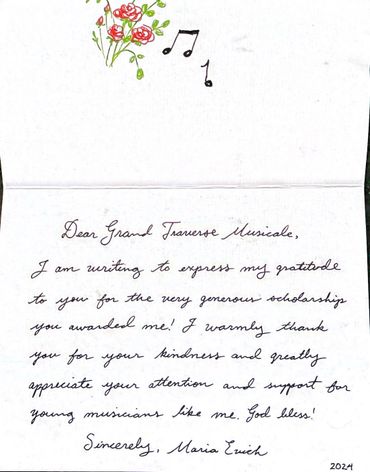 Dear Grand Traverse Musicale,
I am writing to express my gratitude
to you for the very generous scholarship
you awarded me! I warmly thank
you for your kindness and greatly
appreciate your attention and support for
young musicians like me. God bless!
Sincerely, Maria Evich
2024